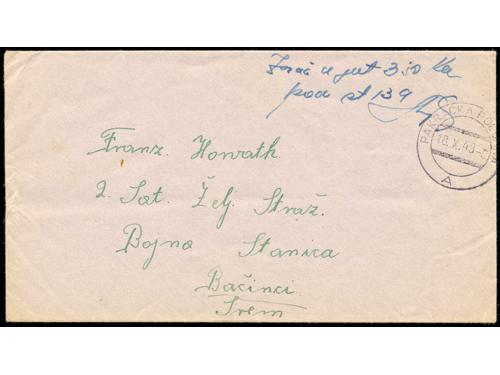 u gut 3.50 Kn
pod st 139
PAKRAČKA PO
18.X.43
A
Franz Horvath
2. Sat. Želj. Straž.
Bojna Stanica
Bačinci
Srem